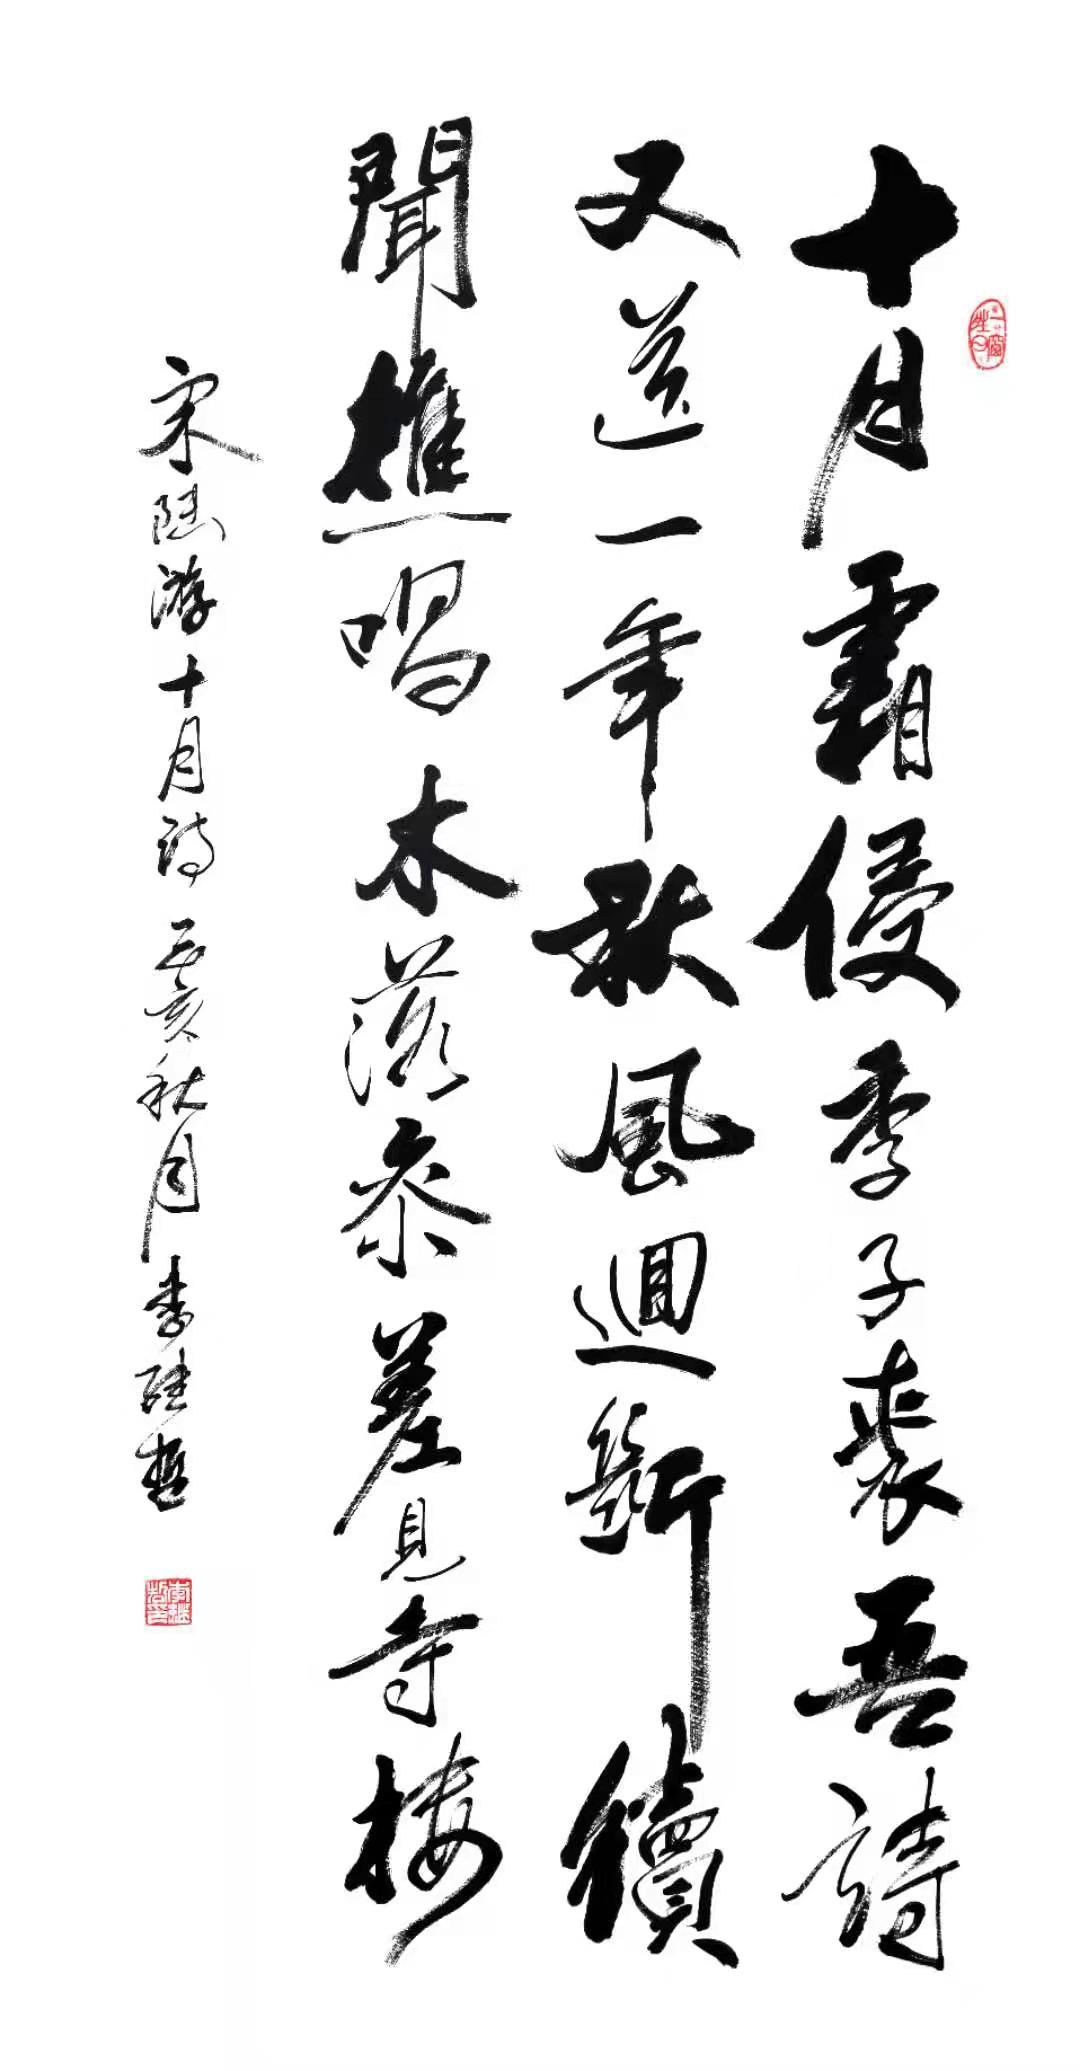 十月霜侵季子裘吾詩
又送一年秋風迴斷續
聞樵唱木落參差見寺樓
宋陸游十月詩己亥秋月李